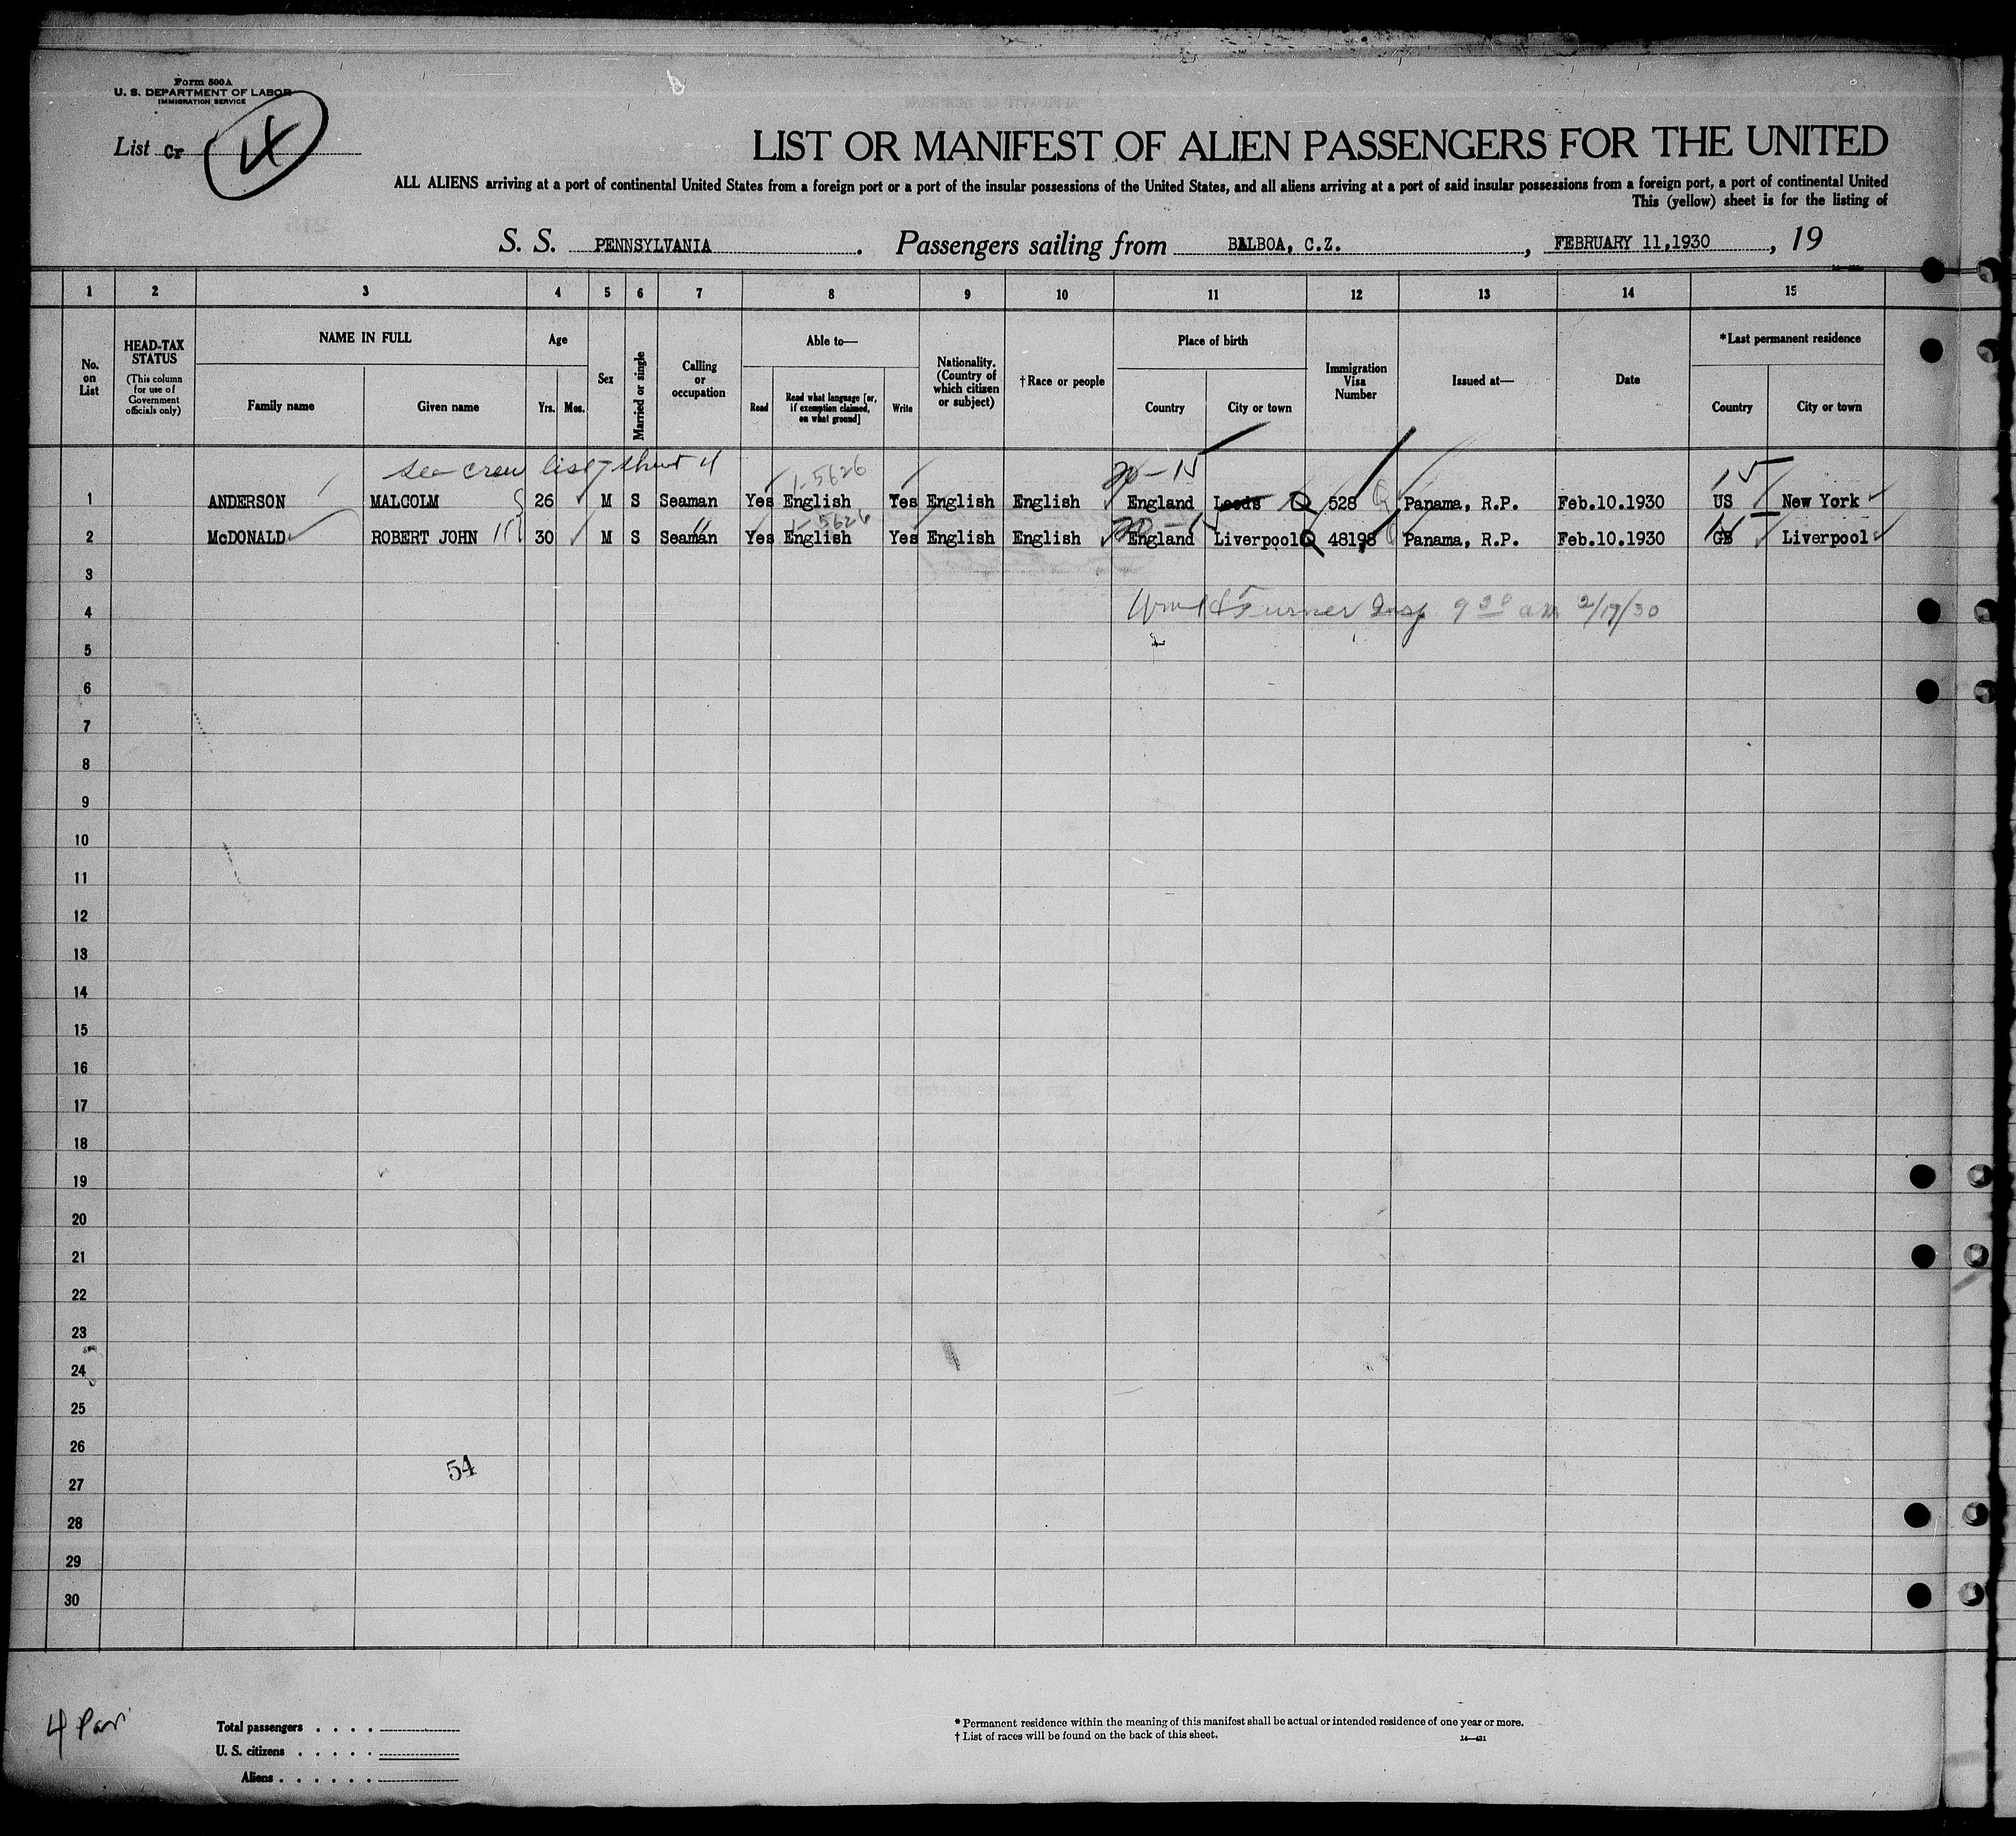 Form 500A
U. S. DEPARTMENT OF LABOR
IMMIGRATION SERVICE
List Cr
LIST OR MANIFEST OF ALIEN PASSENGERS FOR THE UNITED
ALL ALIENS arriving at a port of continental United States from a foreign port or a port of the insular possessions of the United States, and all aliens arriving at a port of said insular possessions from a foreign port, a port of continental United
This (yellow) sheet is for the listing of
S. S. PENNSYLVANIA. Passengers sailing from BALBOA, C.Z., FEBRUARY 11,1930, 19
1 2 3 4 5 6 7 8 9 10 11 12 13 14 15
No. on List
HEAD-TAX STATUS (This column for use of Government officials only)
NAME IN FULL
Family name
Given name
Age
Yrs. Mos.
Sex
Married or single
Calling or occupation
Able to—
Read
Read what language [or, if exemption claimed, on what ground]
Write
Nationality. (Country of which citizen or subject)
†Race or people
Place of birth
Country
City or town
Immigration Visa Number
Issued at—
Date
*Last permanent residence
Country
City or town
see crew list sheet 4
1-5626
20-15
15
1 ANDERSON MALCOLM 26 M S Seaman Yes English Yes English English England Leeds Q 528 Panama, R.P. Feb.10.1930 US New York
1-5626
2 McDONALD ROBERT JOHN 30 M S Seaman Yes English Yes English English England Liverpool Q 48198 Panama, R.P. Feb.10.1930 GB Liverpool
3
4 Turner Insp 9 30 am 2/17/30
5
6
7
8
9
10
11
12
13
14
15
16
17
18
19
20
21
22
23
24
25
26
54
27
28
29
30
4
Total passengers . . . .
U. S. citizens . . . . .
Aliens . . . . . .
* Permanent residence within the meaning of this manifest shall be actual or intended residence of one year or more.
† List of races will be found on the back of this sheet.
14—431